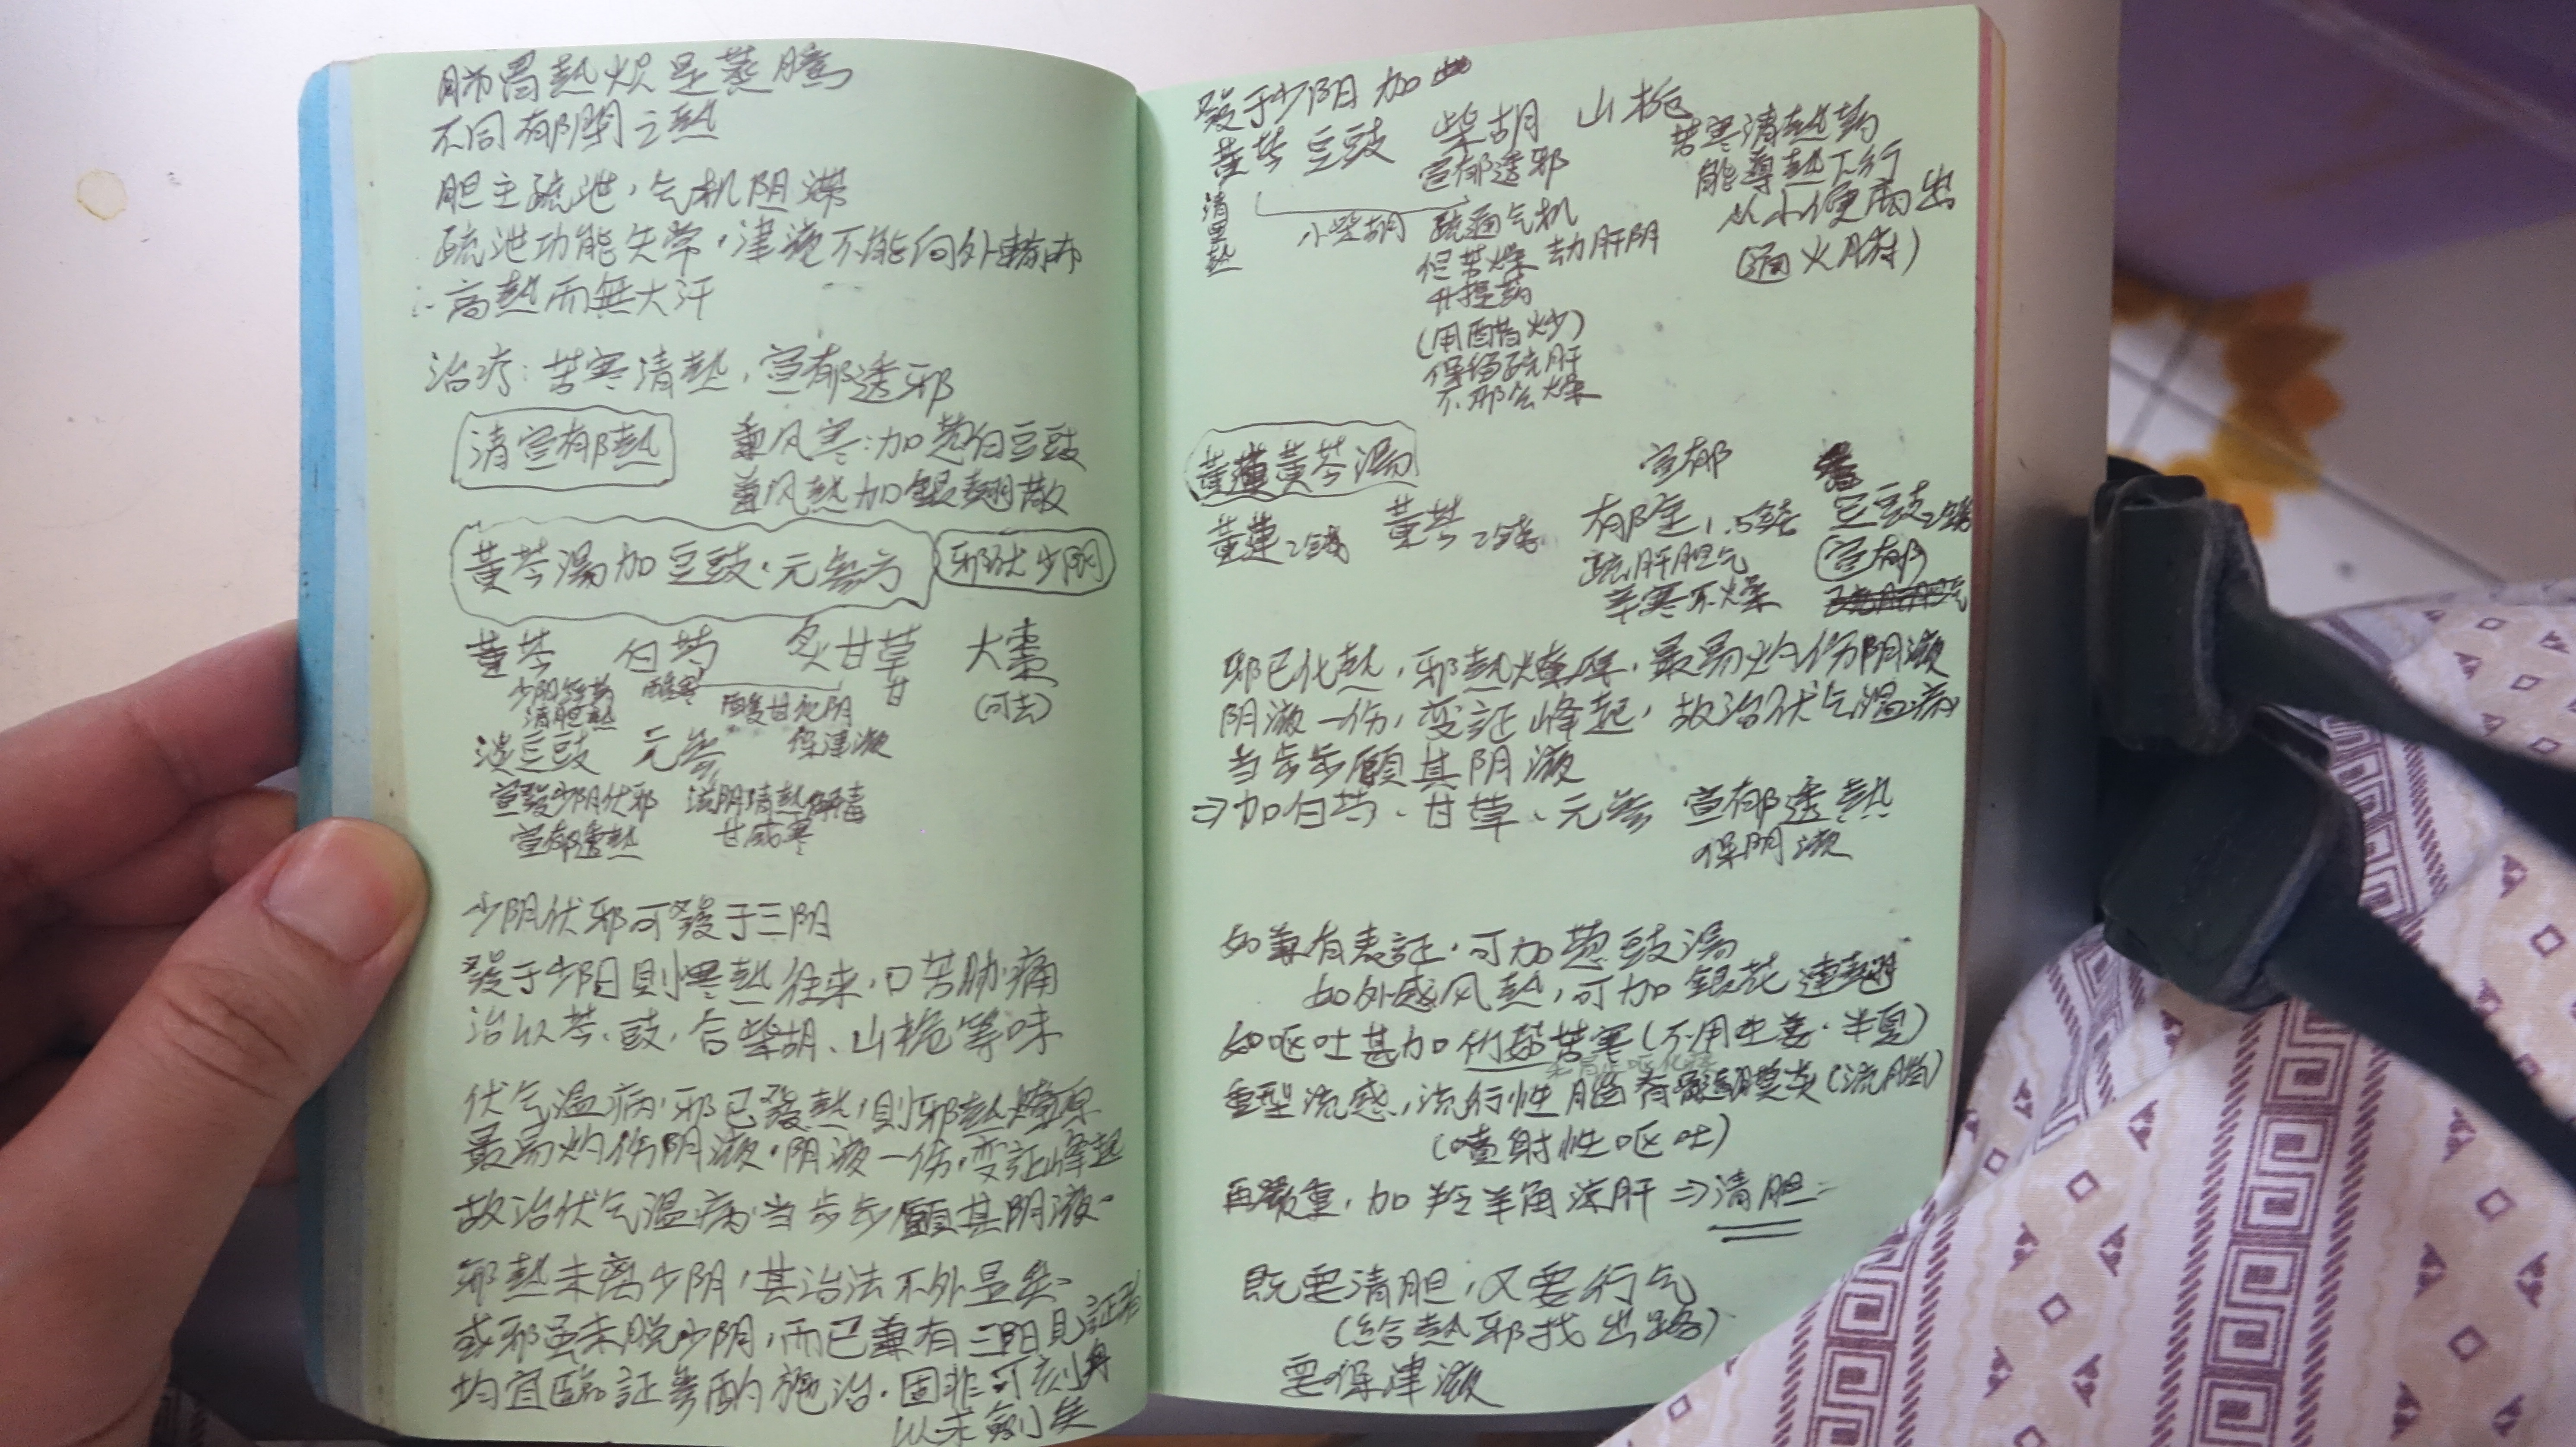 肺胃熱炽是蒸騰
不同郁閉之熱
胆主疏泄，气机阻滞
疏泄功能失常，津液不能向外輸布
∴高熱而無大汗
治疗：苦寒清熱，宣郁透邪
清宣郁熱
兼风寒：加葱白豆豉
兼风熱加銀翹散
黃芩湯加豆豉、元參方
邪伏少阴
黃芩 白芍 炙甘草 大棗
酸寒 甘 (可去)
清胆熱 酸甘化阴
淡豆豉 元參 保津液
宣發少阴伏邪 滋阴清熱解毒
宣郁透熱 甘咸寒
少阴伏邪可發于三阴
發于少阳則寒熱往来，口苦胁痛
治以芩、豉，合柴胡、山栀等味
伏气温病，邪已發熱，則邪熱燎原
最易灼伤阴液，阴液一伤，变証峰起
故治伏气温病，当步步顧其阴液
邪熱未离少阴，其治法不外显矣
或邪虽未脱少阴，而已兼有三阳見証者
均宜臨証參酌施治，固非可刻舟
以求劍矣
發于少阳加
黃芩 豆豉 柴胡 山栀
清里熱 宣郁透邪 苦寒清熱药
能導熱下行
小柴胡 疏通气机 从小便而出
但苦燥 劫肝阴 (通火腑)
升提药
(用醋炒)
保留疏肝
不那么燥
黃連黃芩湯
宣郁
黃連2錢 黃芩2錢 郁金1.5錢 豆豉2錢
疏肝胆气 (宣郁)
辛寒不燥
邪已化熱，邪熱燎原，最易灼伤阴液
阴液一伤，变証峰起，故治伏气温病
当步步顧其阴液
⇒加白芍、甘草、元參 宣郁透熱
保阴液
如兼有表証，可加葱豉湯
如外感风熱，可加銀花連翹
如呕吐甚加竹茹苦寒(不用生姜、半夏)
重型流感，流行性腦脊髓膜炎(流腦)
(噴射性呕吐)
再嚴重，加羚羊角凉肝⇒清胆
既要清胆，又要行气
(给熱邪找出路)
要保津液